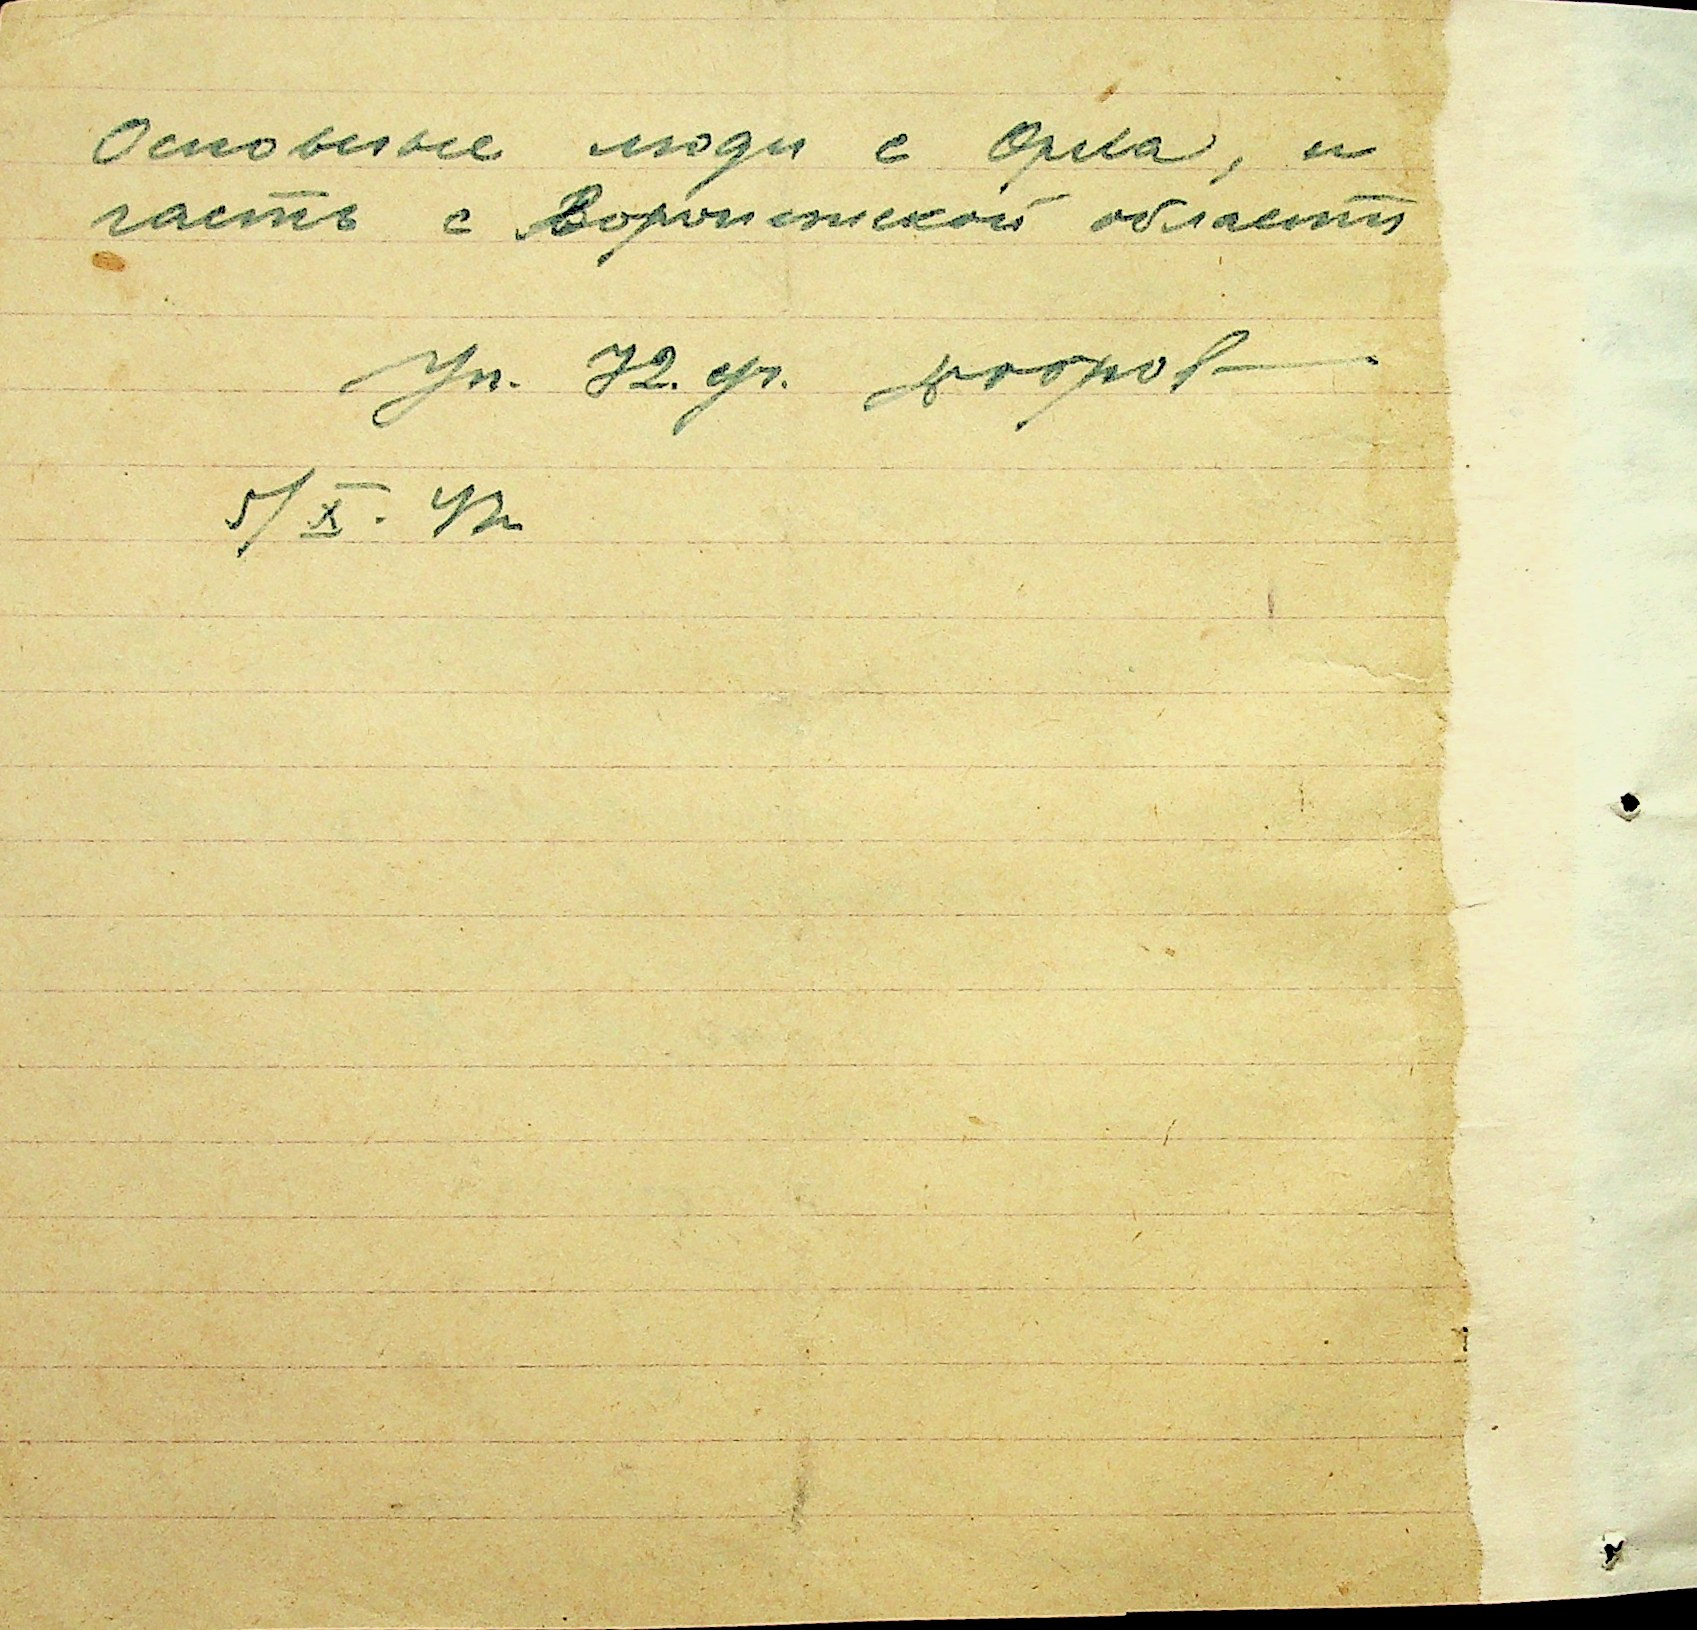 Основные люди с Орла, и
часть с Воронежской области
Уп. 72. гр. Бобров
5/X. 42